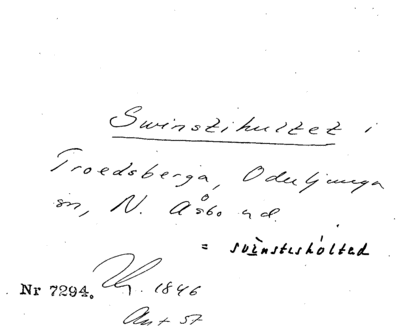 Swinstihultet i
Troedsberga, Oderljunga
sn, N. Åsbo hd.
= svinstishòlted
Nr 7294. 1846
Ant St